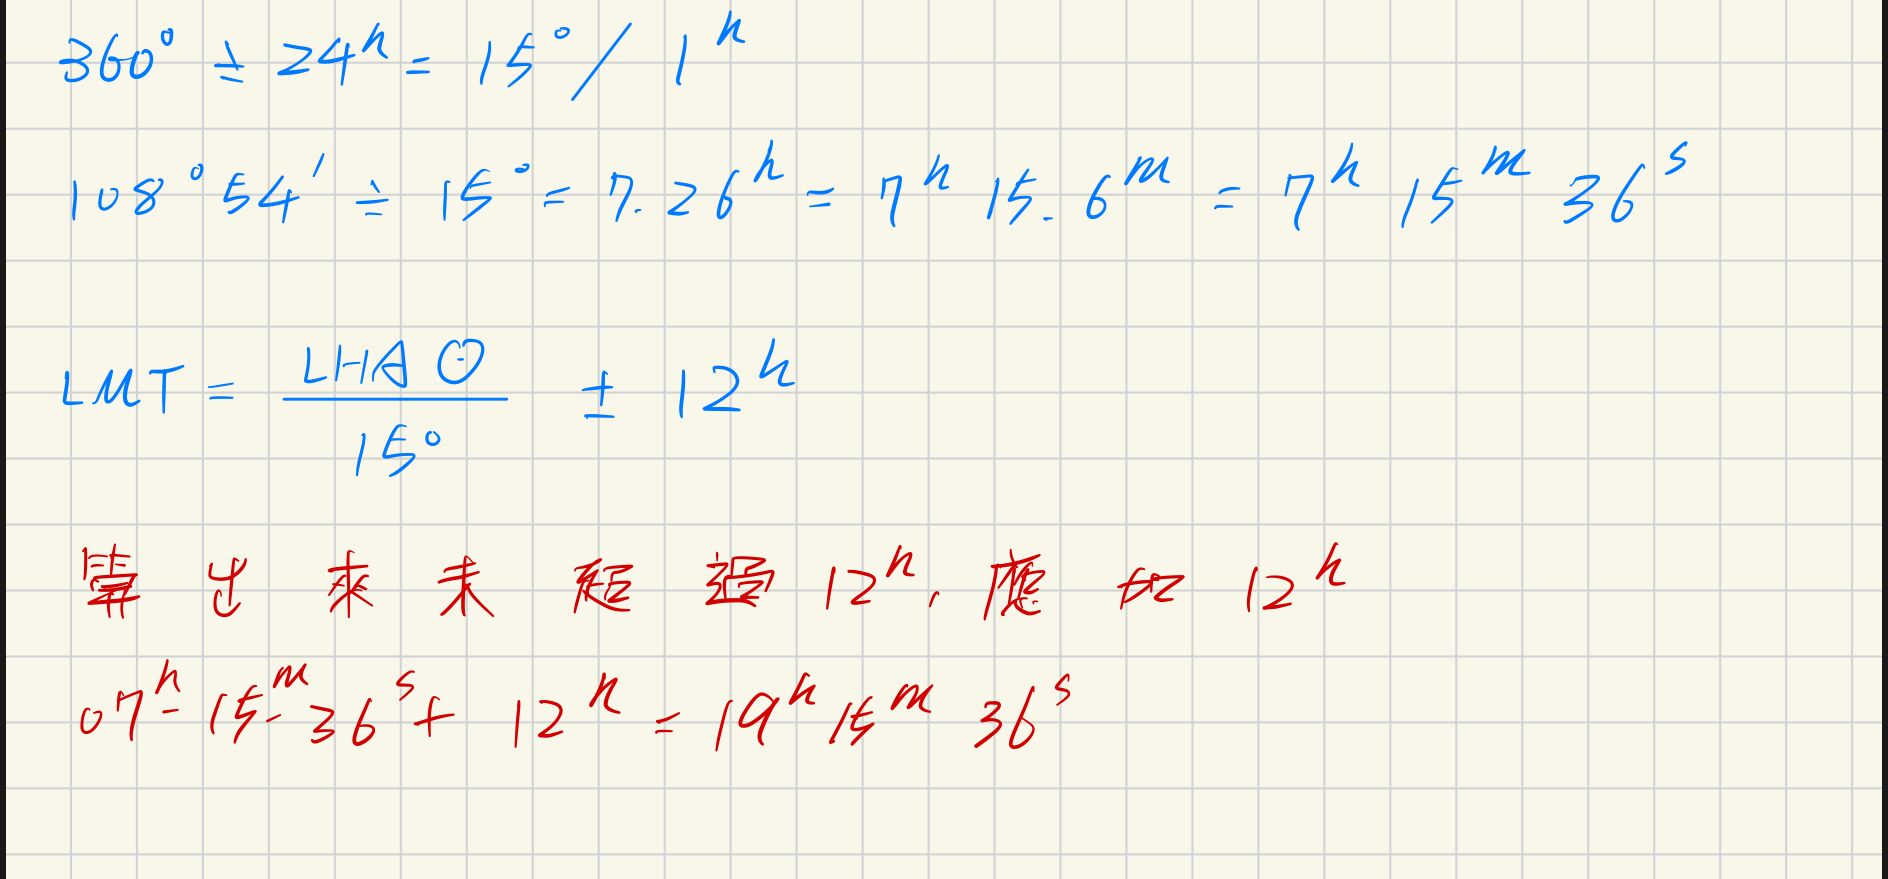 360° ÷ 24ʰ = 15° / 1ʰ
108° 54' ÷ 15° = 7.26ʰ = 7ʰ 15.6ᵐ = 7ʰ 15ᵐ 36ˢ
LMT = LHA ⊙ / 15° ± 12ʰ
算出來未超過12ʰ, 應加12ʰ
07ʰ-15ᵐ-36ˢ + 12ʰ = 19ʰ 15ᵐ 36ˢ